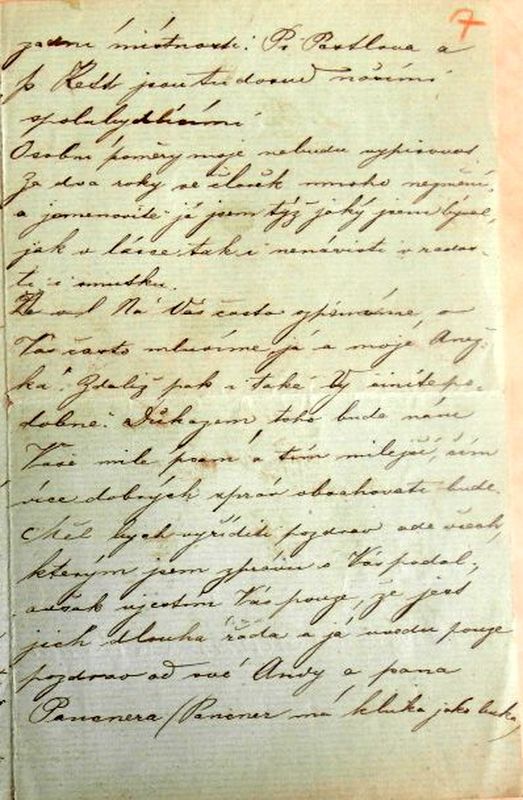 7
zadní místnosti. Pí Pastlova a
p. Kešt jsou tu dosud našimi
spolubydlícími
Osobní poměry moje nebudu vypisovat.
Za dva roky se člověk mnoho nezmění,
a jmenovitě já jsem týž jaký jsem býval,
jak v lásce tak i nenávisti v rados-
ti i smutku.
Že na Vás často vzpomínáme, o
Vás často mluvíme já a moje Anež-
ka. Zdaliž pak i také Vy činíte po-
dobně. Důkazem toho bude nám
Vaše milé psaní a tím milejší, čím
více dobrých zpráv obsahovati bude.
Měl bych vyříditi pozdrav ode všech,
kterým jsem zprávu o Vás podal,
avšak ujistím Vás pouze, že jest
jich dlouhá řada a já uvedu pouze
pozdrav od své Andy a pana
Pancnera (Pancner má kluka jako buka)